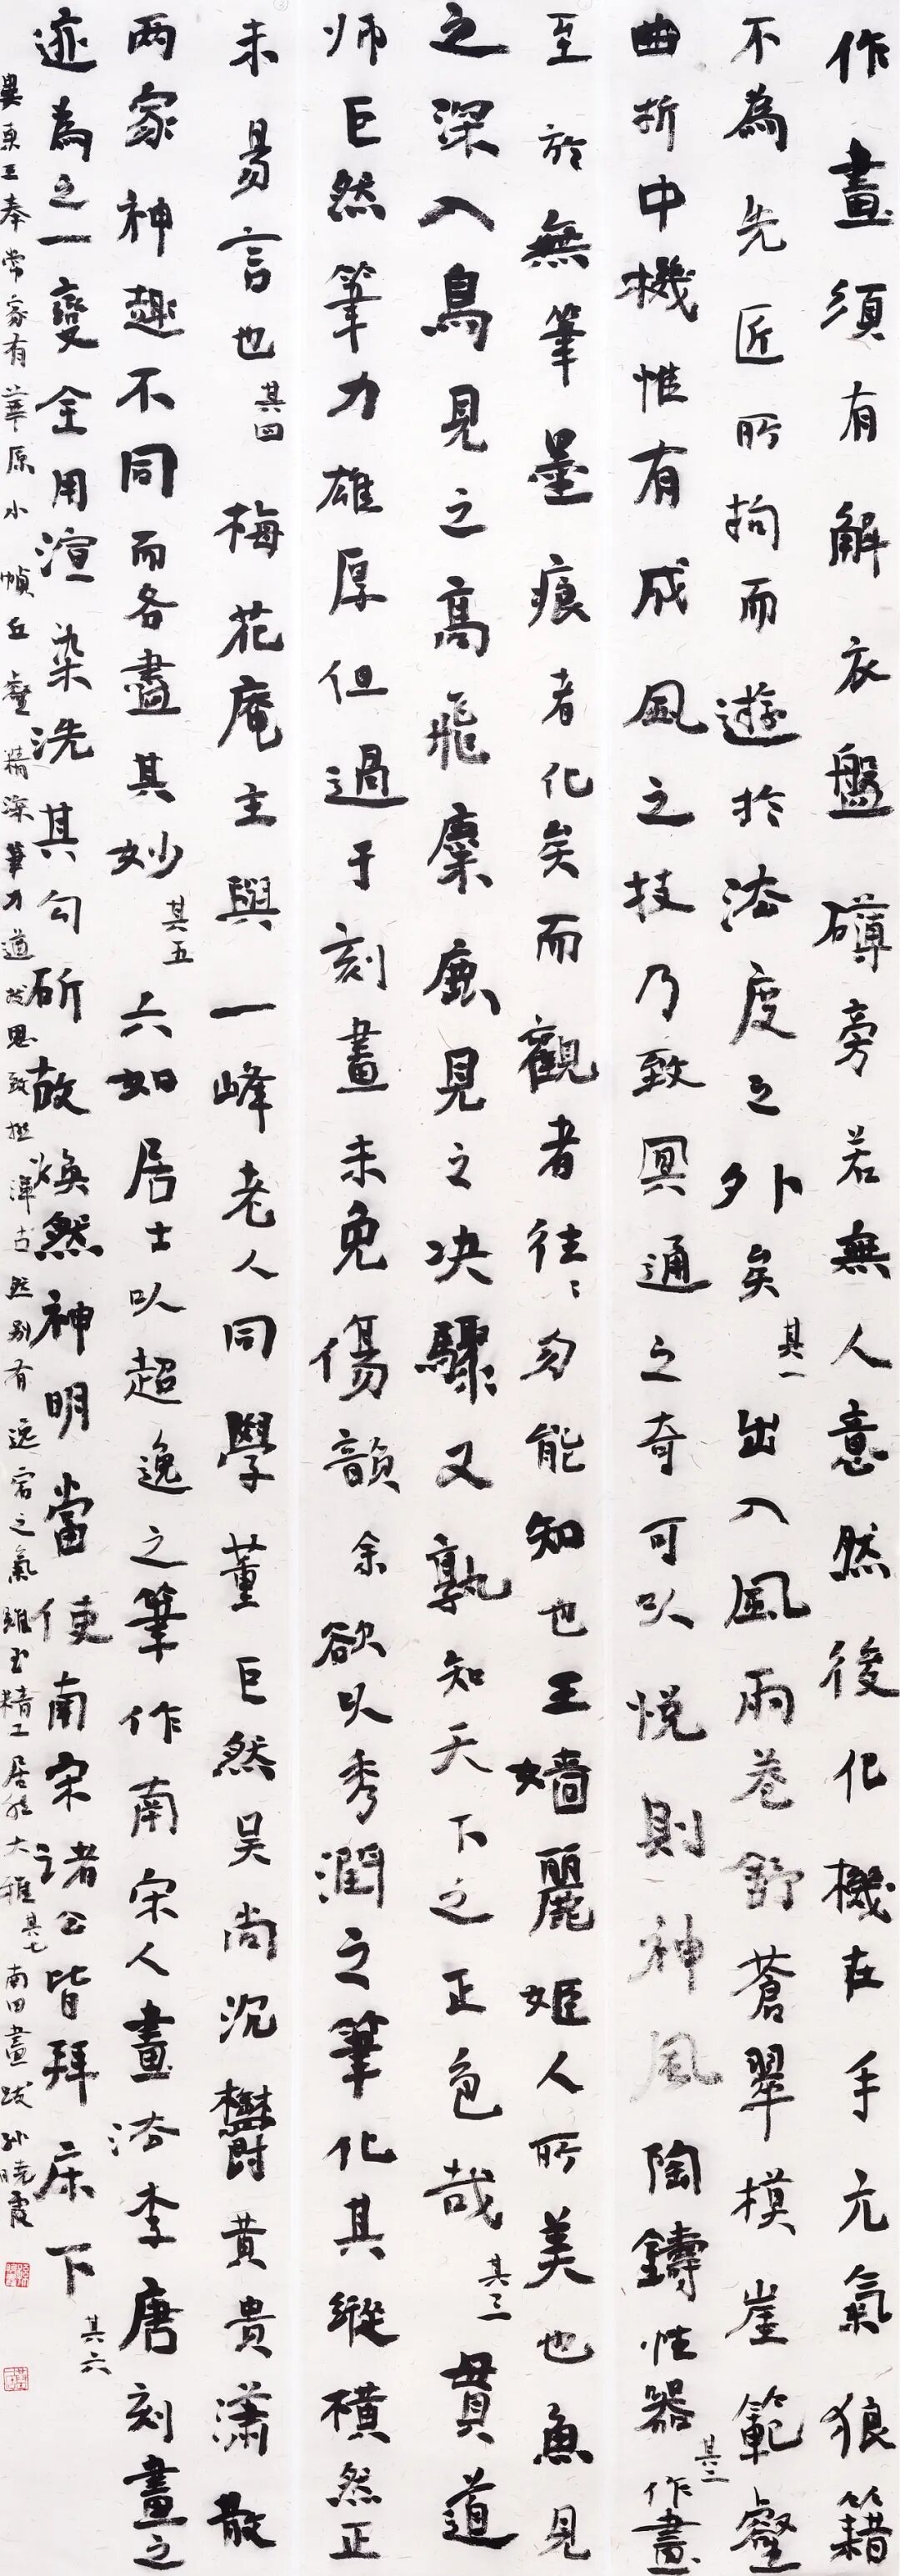 作畫須有解衣盤礴旁若無人意然後化機在手元氣狼籍
不為先匠所拘而遊於法度之外矣其一出入風雨卷舒蒼翠模崖範壑
曲折中機惟有成風之技乃致冥通之奇可以悦則神風陶鑄性器其二作畫
至於無筆墨痕者化矣而觀者往往勿能知也王嬙麗姬人所美也魚見
之深入鳥見之高飛麋鹿見之决驟又孰知天下之正色哉其三貫道
师巨然筆力雄厚但過于刻畫未免傷韻余欲以秀潤之筆化其縱横然正
未易言也其四梅花庵主與一峰老人同學董巨然吴尚沉欝黄貴潇散
两家神趣不同而各盡其妙其五六如居士以超逸之筆作南宋人畫法李唐刻畫之
迹為之一變全用渲染洗其勾斫故焕然神明當使南宋諸公皆拜床下其六
婁東王奉常家有華原小幀丘壑精深筆力遒拔思致極渾古然别有逸宕之氣雖至精工居然大雅其七南田畫跋孙曉霞